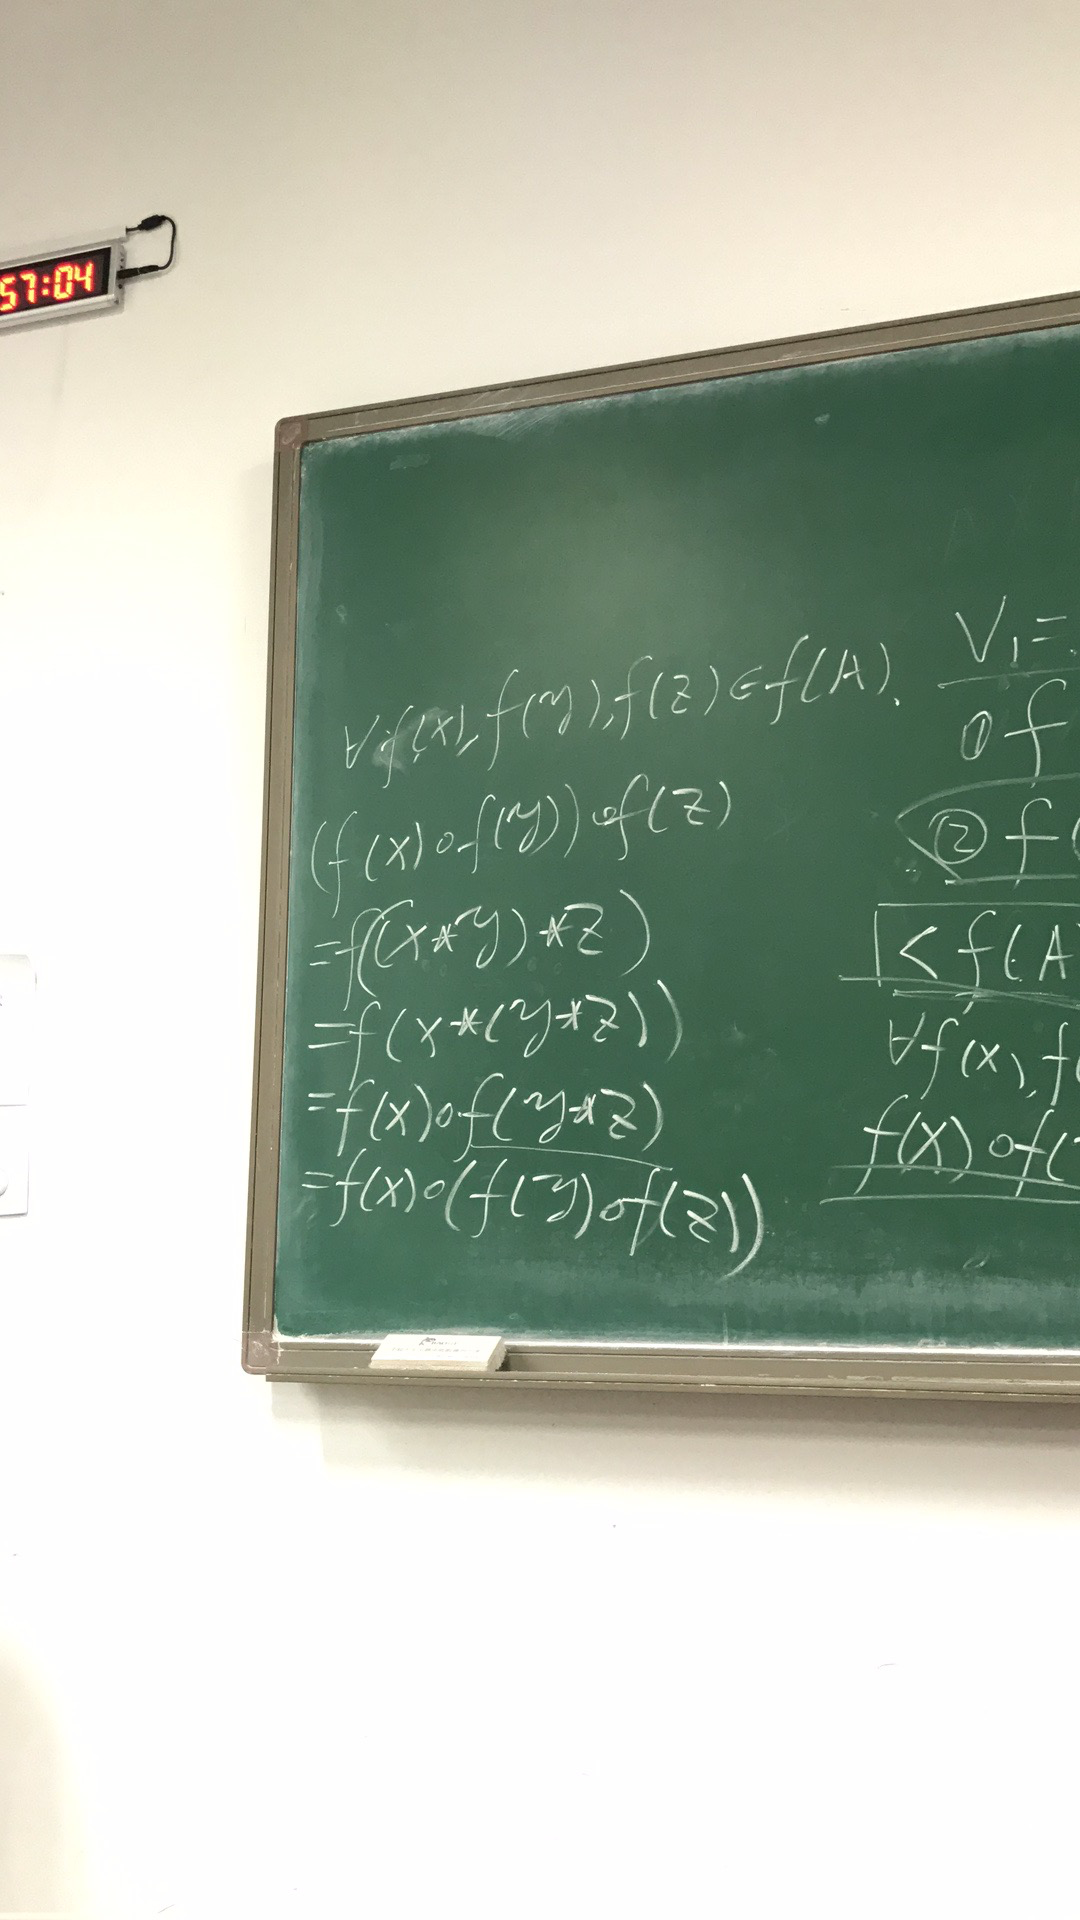 57:04
∀f(x),f(y),f(z)∈f(A).
(f(x)∘f(y))∘f(z)
=f((x*y)*z)
=f(x*(y*z))
=f(x)∘f(y*z)
=f(x)∘(f(y)∘f(z))
V₁=
① f
② f(
<f(A)
∀f(x),f(
f(x)∘f(